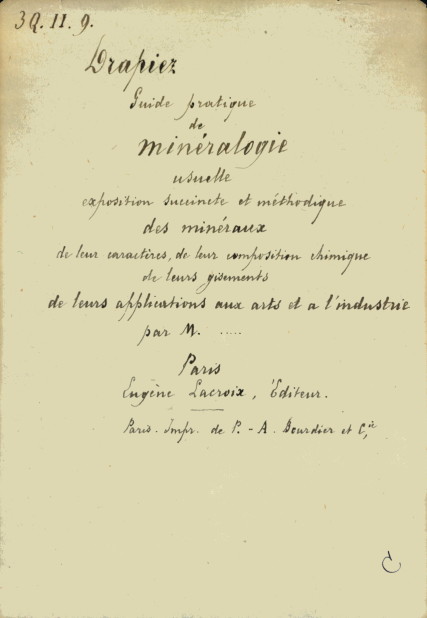 3Q. 11. 9.
Drapiez
Guide pratique
de
minéralogie
usuelle
exposition succincte et méthodique
des minéraux
de leur caractères, de leur composition chimique
de leurs gisements
de leurs applications aux arts et a l'industrie
par M. .....
Paris
Eugène Lacroix, Éditeur.
Paris. Impr. de P.-A. Bourdier et Cie,